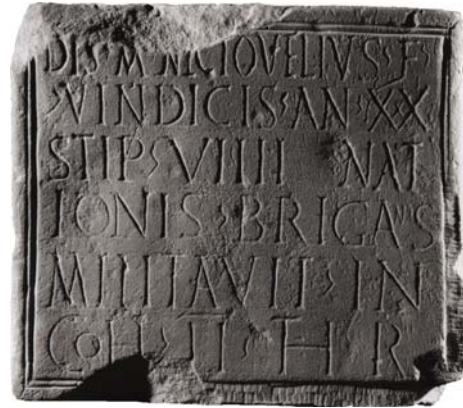 DIS M NECTOVELIVS F
VINDICIS AN XX
STIP VIIII NAT
IONIS BRIGANS
MILITAVIT IN
COH II THR